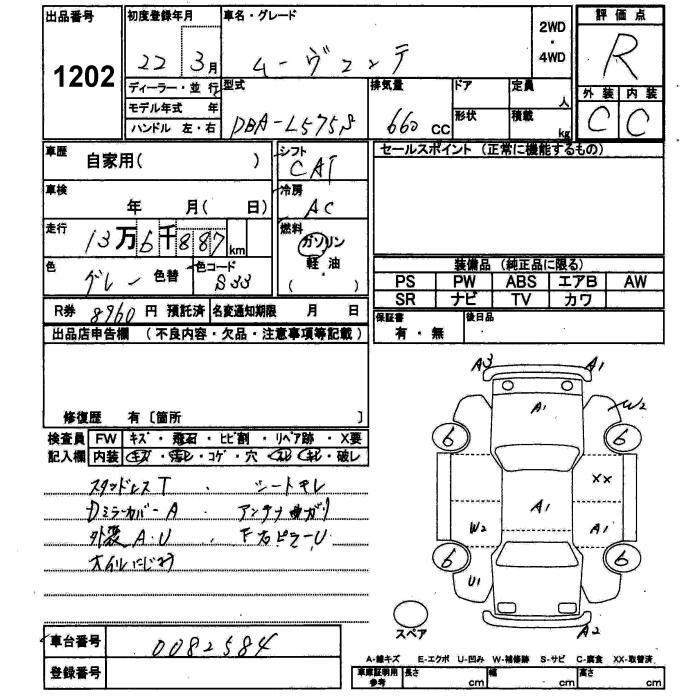 出品番号
1202
初度登録年月
22 3月
ディーラー・並行
モデル年式 年
ハンドル 左・右
車名・グレード
ムーヴコンテ
2WD
・
4WD
型式
DBA-L575S
排気量
660 cc
ドア
形状
定員
人
積載
kg
評価点
R
外装 内装
C C
車歴
自家用( )
車検
年 月( 日)
走行
13万6千887km
色
グレー 色替
色コード
S33
シフト
CAT
冷房
AC
燃料
ガソリン
軽・油
( )
セールスポイント (正常に機能するもの)
装備品 (純正品に限る)
PS PW ABS エアB AW
SR ナビ TV カワ
R券 8960円 預託済 名変通知期限 月 日
保証書
有・無
後日品
出品店申告欄 (不良内容・欠品・注意事項等記載)
修復歴 有〔箇所 〕
検査員 FW キズ・飛石・ヒビ割・リペア跡・X要
記入欄 内装 キズ・汚レ・コゲ・穴・スレ・キレ・破レ
スタッドレスT ・ シートキレ
Dミラーカバー A ・ アンテナ曲ガリ
外装 A・U ・ F右ピラーU
オイルにじみ
A3 A1
A1
W2
6 6
XX
A1
W2 A1
6 6
U1
A2
スペア
車台番号
0082584
登録番号
A-線キズ E-エクボ U-凹み W-補修跡 S-サビ C-腐食 XX-取替済
車庫証明用
参考
長さ cm 幅 cm 高さ cm